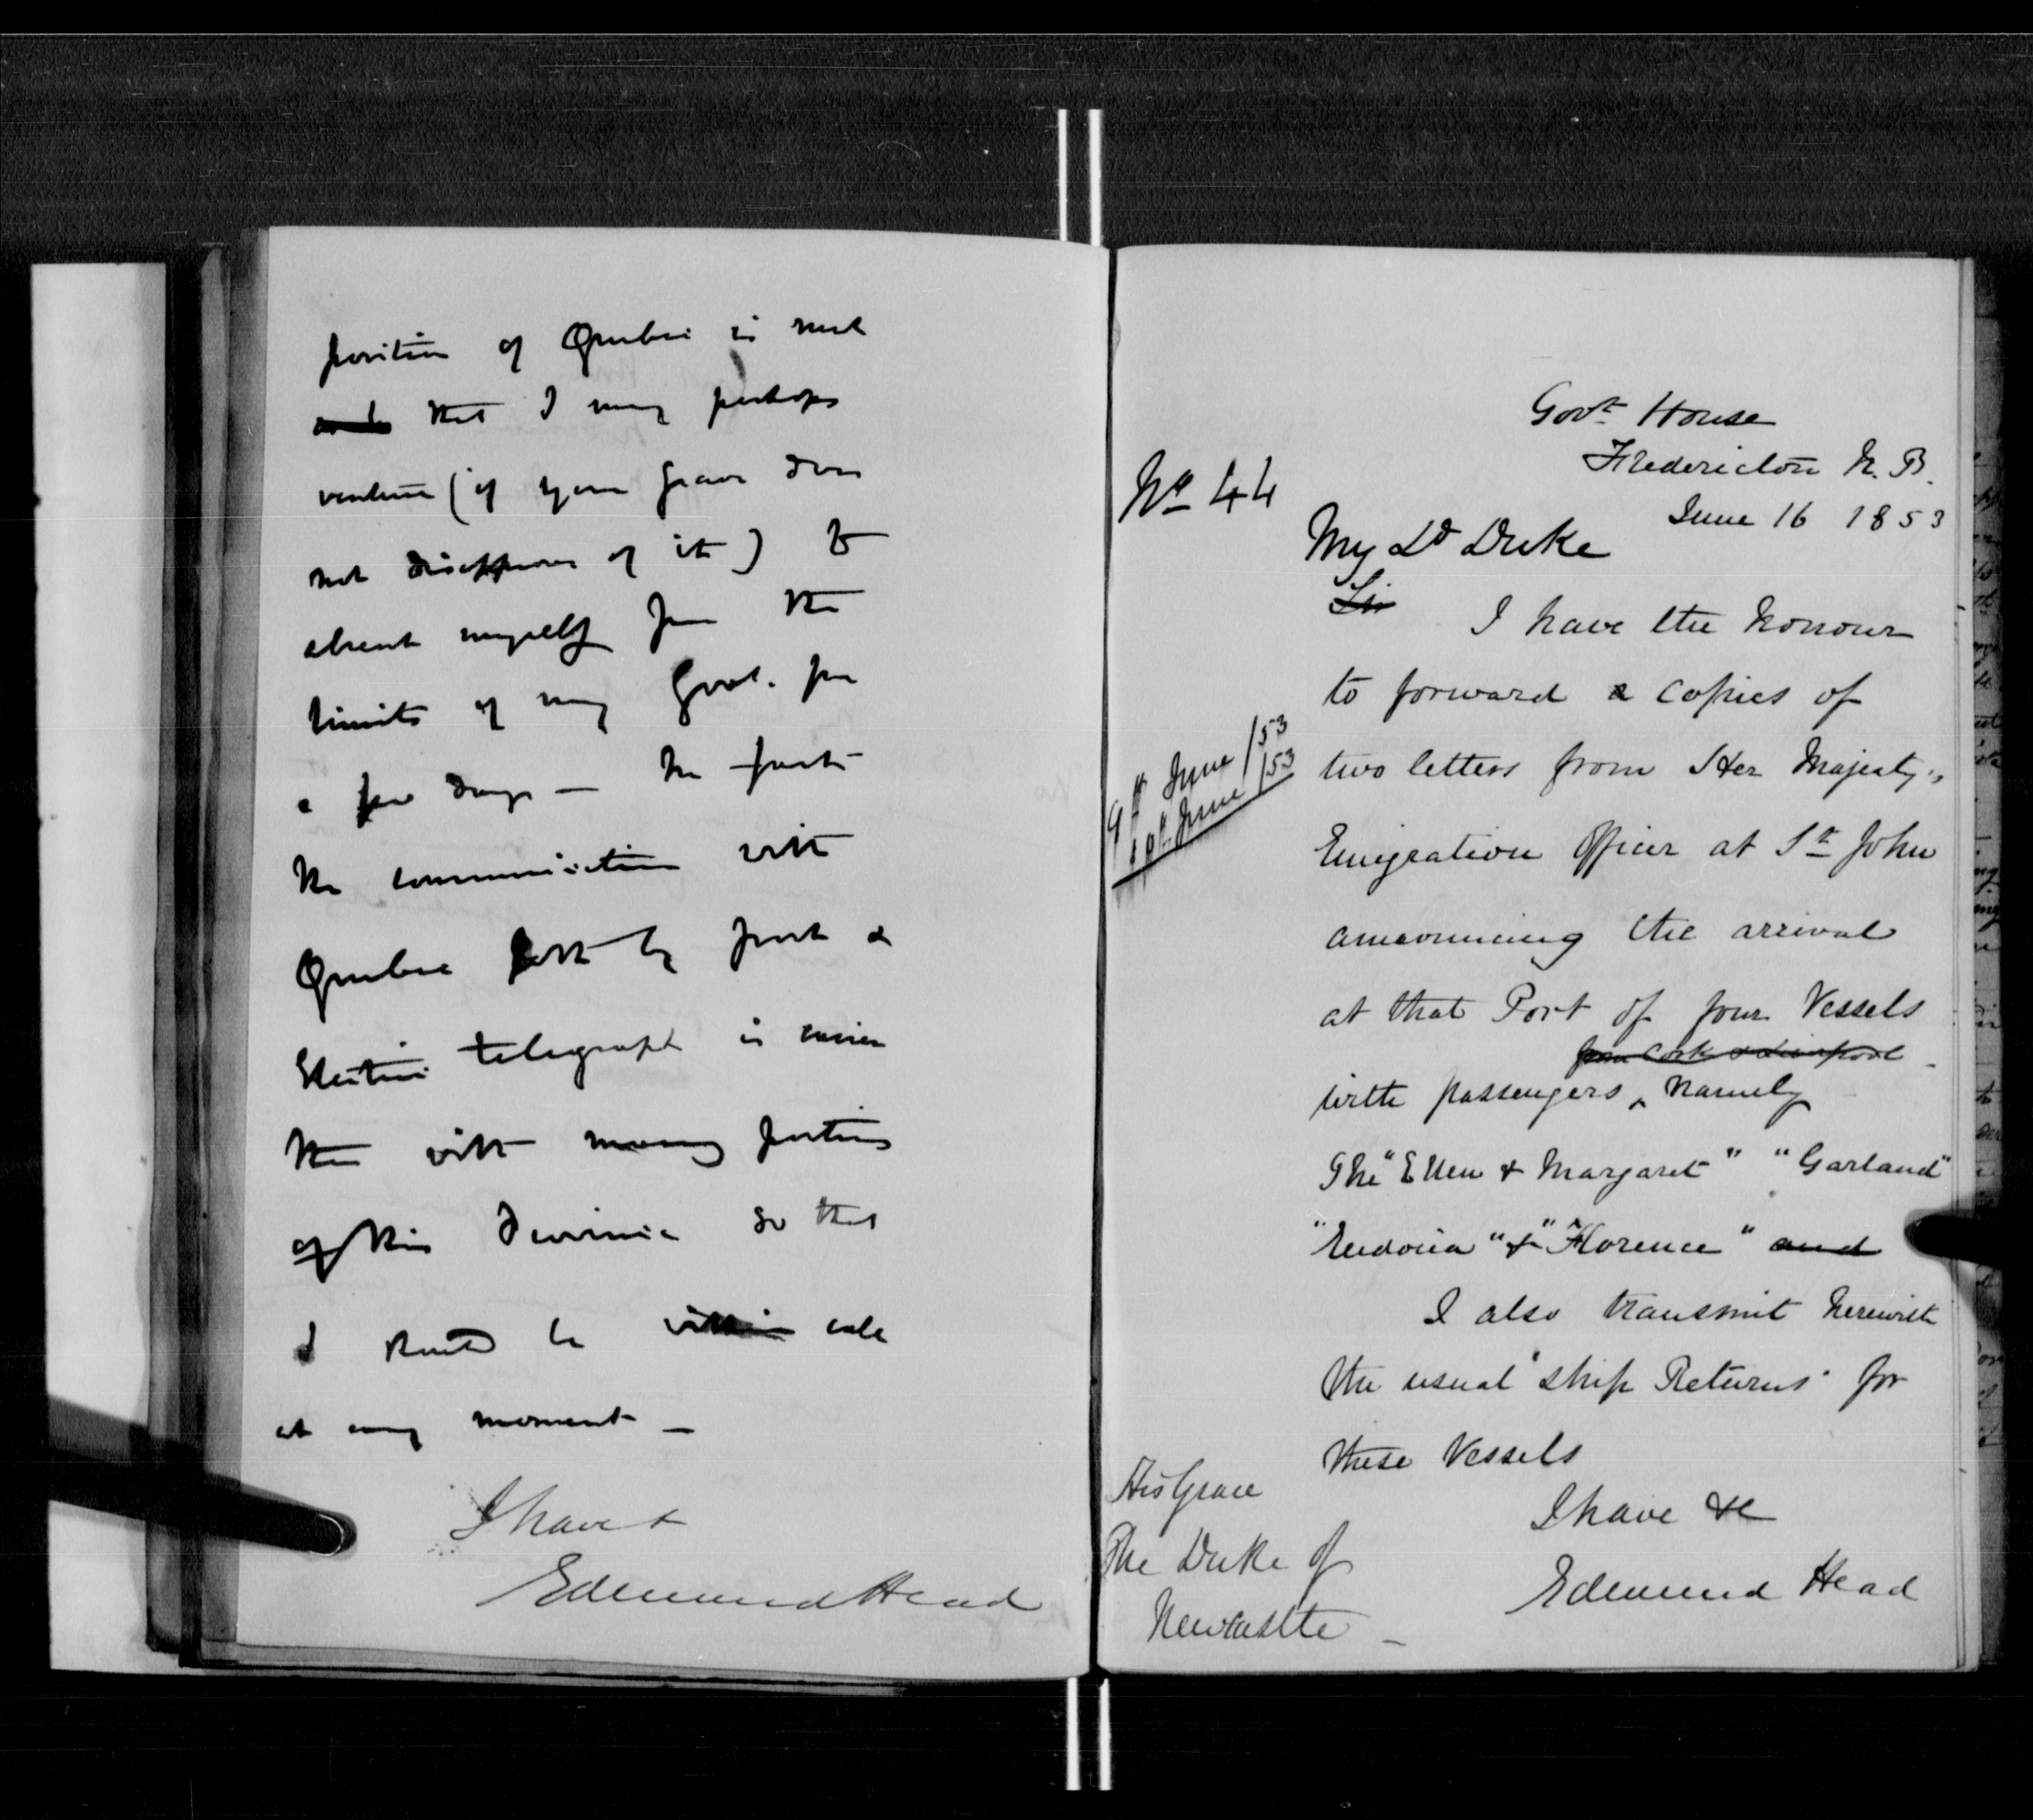 position of Quebec is such
that I may perhaps
venture (if your Grace does
not disapprove of it) to
absent myself from the
limits of my Govt. for
a few days — In fact
the communication with
Quebec both by post &
Electric telegraph is easier
than with many portions
of this Province so that
I should be within call
at any moment —
I have &
Edmund Head
Govt House
Fredericton N. B.
June 16 1853
No 44
My Ld Duke
Sir
I have the honour
to forward copies of
9th June /53
10th June /53
two letters from Her Majesty's
Emigration Officer at St John
announcing the arrival
at that Port of four Vessels
from Cork & Liverpool
with passengers ^ namely
The "Ellen & Margaret" "Garland"
"Eudocia" & "Florence" and
I also transmit herewith
the usual "Ship Returns" for
these Vessels
I have &c
Edmund Head
His Grace
The Duke of
Newcastle —